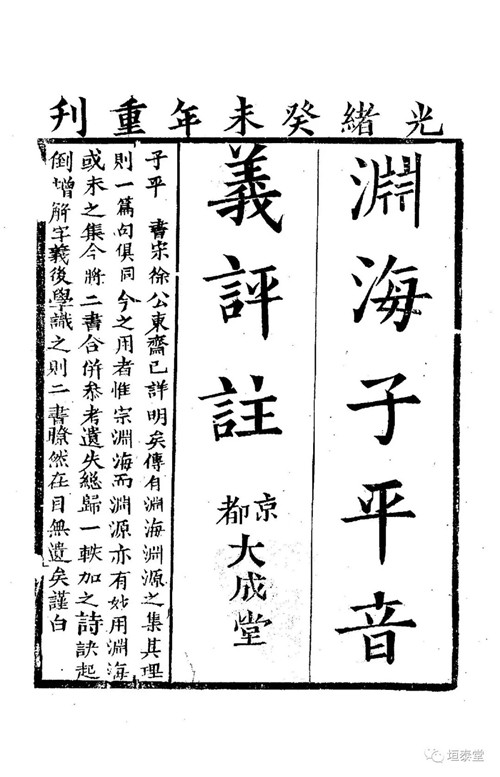 光緒癸未年重刊
淵海子平音
義評註
京都大成堂
子平書宋徐公東齋已詳明矣傳有淵海淵源之集其理
則一篇句俱同今之用者惟宗淵海而淵源亦有妙用淵海
或未之集今將二書合併參考遺失總歸一帙加之詩訣起
倒增解字義後學識之則二書瞭然在目無遺矣謹白
垣泰堂